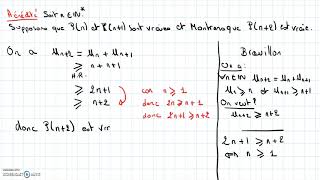 Hérédité Soit n ∈ ℕ*
Supposons que P(n) et P(n+1) sont vraies et Montrons que P(n+2) est vraie.
On a u_{n+2} = u_{n+1} + u_n
≥ n + n+1
H.R.
≥ 2n+1
≥ n+2
car n ≥ 1
donc 2n ≥ n+1
donc 2n+1 ≥ n+2
donc P(n+2) est vr
Brouillon
On a :
∀n∈ℕ u_{n+2} = u_{n+1} + u_n
u_n ≥ n et u_{n+1} ≥ n+1
On veut ?
u_{n+2} ≥ n+2
2n+1 ≥ n+2
car n ≥ 1